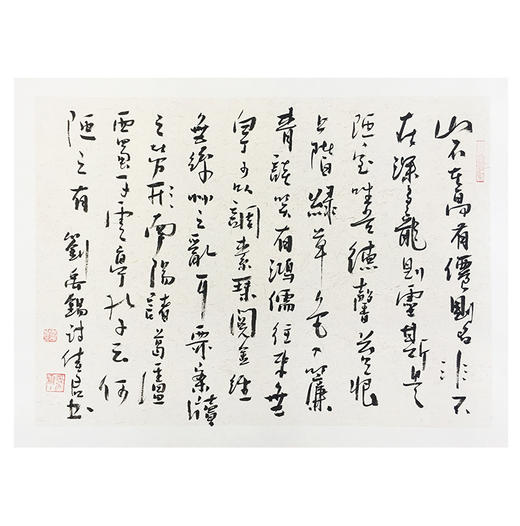 山不在高有僊則名水不
在深有龍則靈斯是
陋室唯吾德馨苔痕
上階綠草色入簾
青談笑有鴻儒往來無
白丁可以調素琴閱金經
無絲竹之亂耳無案牘
之勞形南陽諸葛廬
西蜀子雲亭孔子云何
陋之有 劉禹錫詩 書